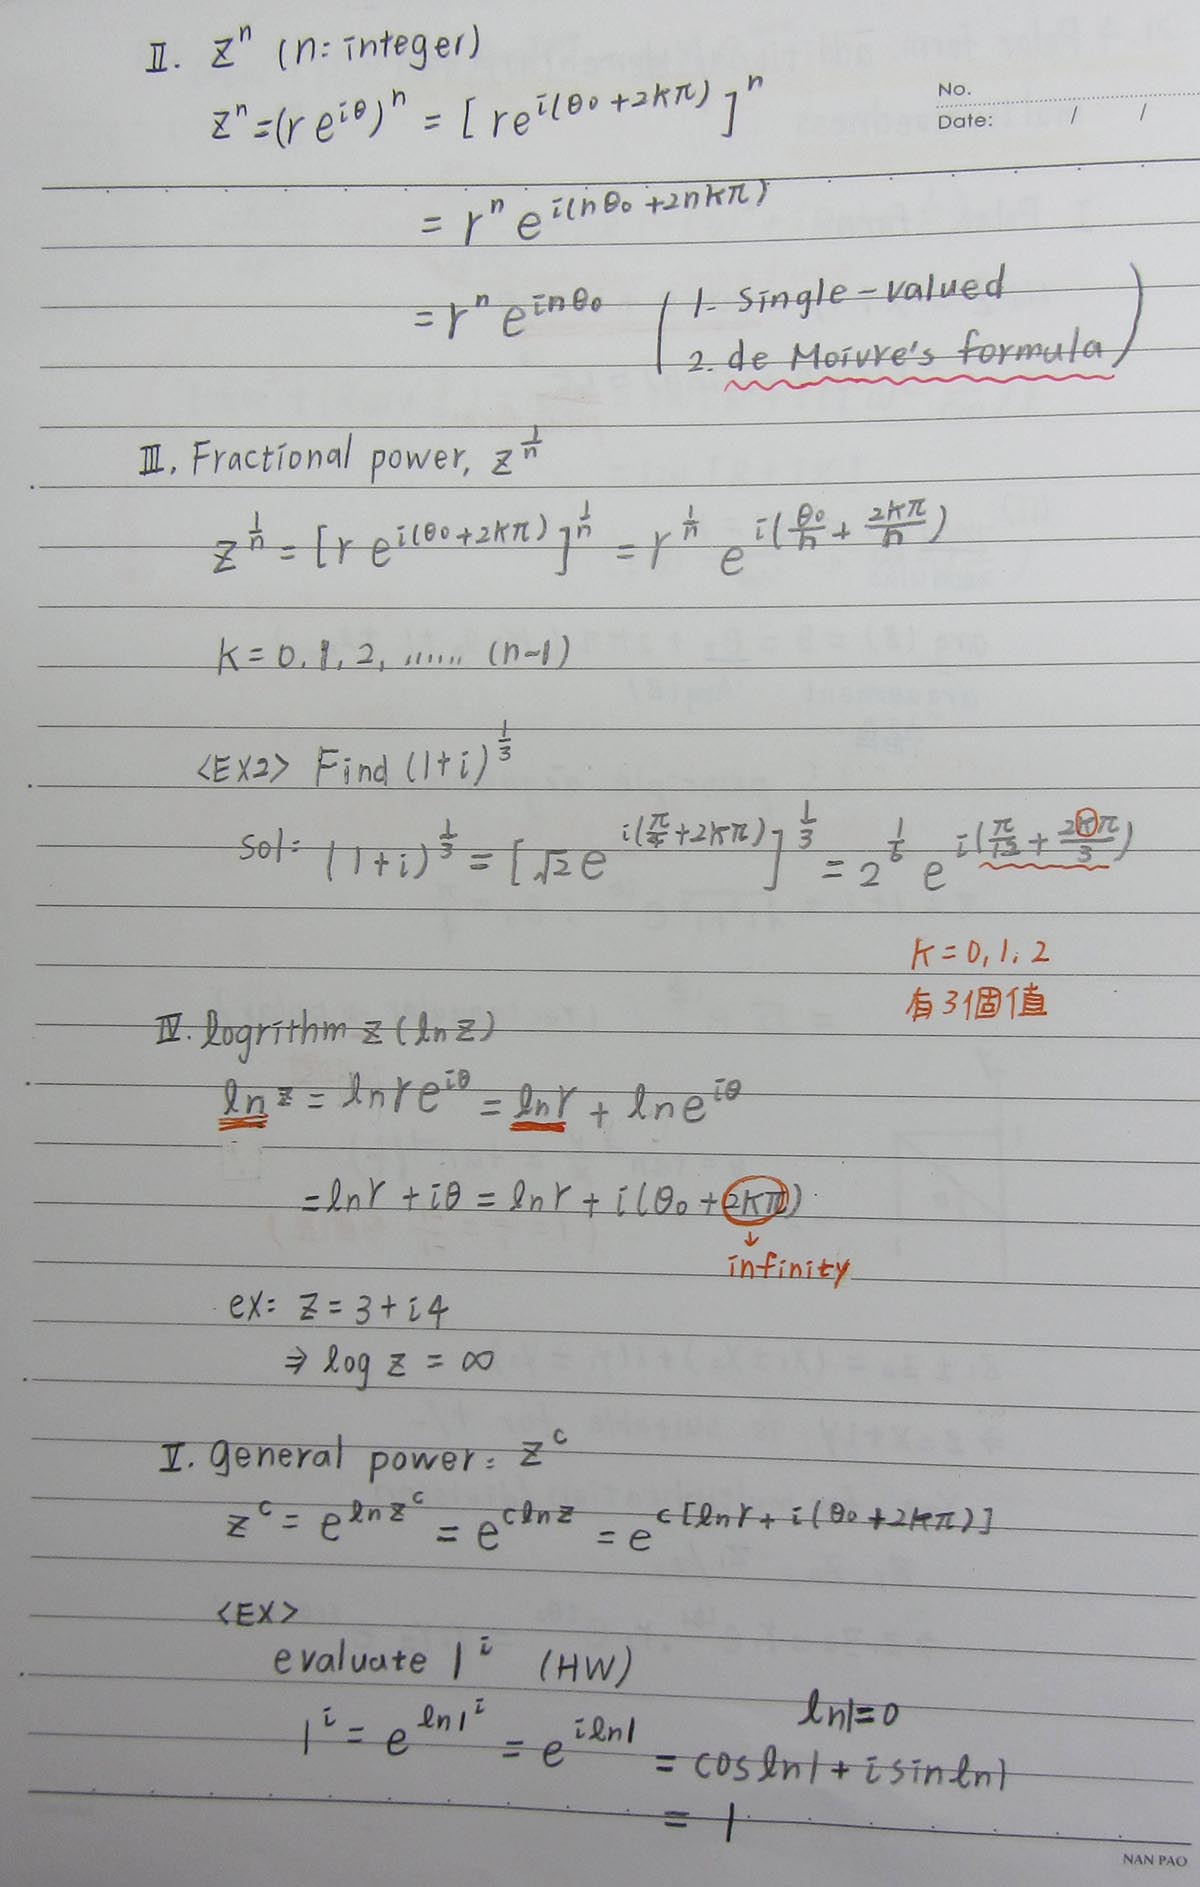 II. zⁿ (n: integer)
No.
Date: / /
zⁿ=(re^{iθ})ⁿ = [re^{i(θ₀+2kπ)}]ⁿ
= rⁿe^{i(nθ₀+2nkπ)}
= rⁿe^{inθ₀} (1. Single-valued
2. de Moivre's formula)
III. Fractional power, z^{1/n}
z^{1/n} = [re^{i(θ₀+2kπ)}]^{1/n} = r^{1/n} e^{i(θ₀/n + 2kπ/n)}
k=0,1,2,...... (n-1)
<EX2> Find (1+i)^{1/3}
Sol: (1+i)^{1/3} = [√2e^{i(π/4+2kπ)}]^{1/3} = 2^{1/6} e^{i(π/12 + 2kπ/3)}
k=0,1,2
有3個值
IV. logrithm z (lnz)
lnz = lnre^{iθ} = lnr + lne^{iθ}
=lnr+iθ = lnr+i(θ₀+2kπ)
↓
infinity
ex: z=3+i4
⇒ log z = ∞
V. general power: z^c
z^c = e^{lnz^c} = e^{clnz} = e^{c[lnr+i(θ₀+2kπ)]}
<EX>
evaluate 1^i (HW)
ln1=0
1^i = e^{ln1^i} = e^{iln1} = cosln1+isinln1
= 1
NAN PAO